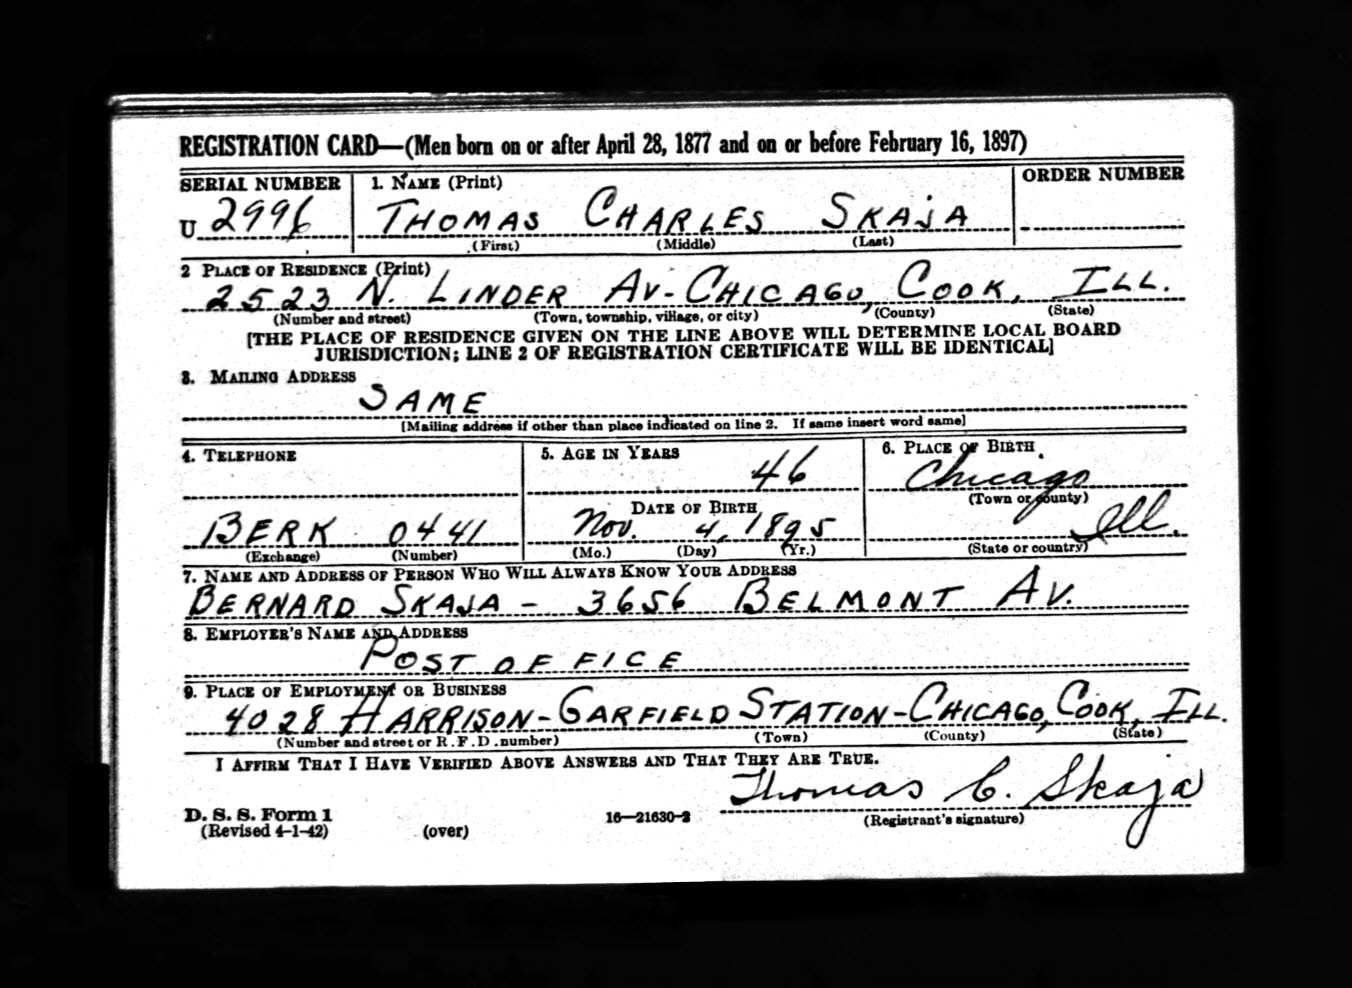 REGISTRATION CARD—(Men born on or after April 28, 1877 and on or before February 16, 1897)
SERIAL NUMBER 1. NAME (Print) ORDER NUMBER
U 2996 THOMAS CHARLES SKAJA
(First) (Middle) (Last)
2 PLACE OF RESIDENCE (Print)
2523 N. LINDER AV-CHICAGO, COOK, ILL.
(Number and street) (Town, township, village, or city) (County) (State)
[THE PLACE OF RESIDENCE GIVEN ON THE LINE ABOVE WILL DETERMINE LOCAL BOARD
JURISDICTION; LINE 2 OF REGISTRATION CERTIFICATE WILL BE IDENTICAL]
3. MAILING ADDRESS
SAME
[Mailing address if other than place indicated on line 2. If same insert word same]
4. TELEPHONE 5. AGE IN YEARS 6. PLACE OF BIRTH
46 Chicago
DATE OF BIRTH (Town or county)
BERK 0441 Nov. 4, 1895 Ill.
(Exchange) (Number) (Mo.) (Day) (Yr.) (State or country)
7. NAME AND ADDRESS OF PERSON WHO WILL ALWAYS KNOW YOUR ADDRESS
BERNARD SKAJA - 3656 BELMONT AV.
8. EMPLOYER'S NAME AND ADDRESS
POST OFFICE
9. PLACE OF EMPLOYMENT OR BUSINESS
4028 HARRISON-GARFIELD STATION-CHICAGO, COOK, ILL.
(Number and street or R. F. D. number) (Town) (County) (State)
I AFFIRM THAT I HAVE VERIFIED ABOVE ANSWERS AND THAT THEY ARE TRUE.
Thomas C. Skaja
D. S. S. Form 1 16—21630-2 (Registrant's signature)
(Revised 4-1-42) (over)